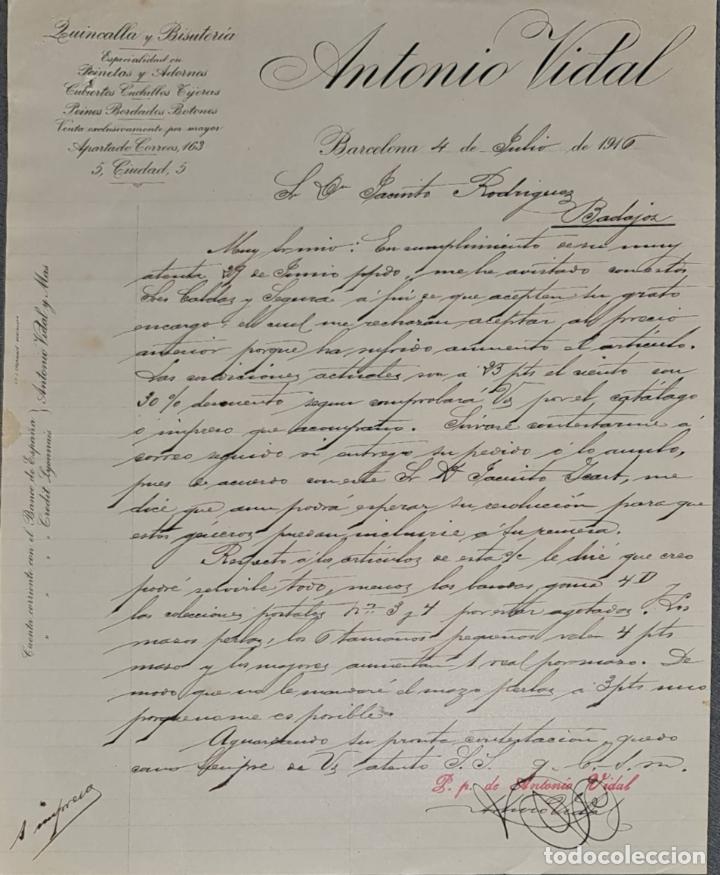 Quincalla y Bisutería
Especialidad en
Peinetas y Adornos
Cubiertos Cuchillos Tijeras
Peines Bordados Botones
Venta exclusivamente por mayor
Apartado Correos, 163
5, Ciudad, 5
Antonio Vidal
Barcelona 4 de Julio de 1916
Sr Dn Jacinto Rodriguez
Badajoz
Muy Sr mio: En cumplimiento de su muy
atenta 29 de Junio ppdo, me he avistado con estos
Sres Caldas y Segura á fin de que acepten su grato
encargo, el cual me rechazan aceptar al precio
anterior porque ha sufrido aumento el artículo.
Las condiciones actuales son a 23 pts el ciento con
30% descuento segun comprobará Vd por el catálogo
o impreso que acompaño. Sirvase contestarme á
correo seguido si entrego su pedido ó lo anulo,
pues de acuerdo con este Sr Dn Jacinto Icart, me
dice que aun podrá esperar su resolución para que
estos géneros puedan incluirse á su remesa.
Respecto á los artículos de esta s/c le diré que creo
podré servirle todo, menos las bandas goma 4D y
las colecciones postales nos 3 y 4 por estar agotadas. Los
mazos perlas, los 6 tamaños pequeños valen 4 pts
mazo y los mayores aumentan 1 real por mazo. De
modo que no le mandaré el mazo perlas á 3 pts uno
porque no me es posible.
Aguardando su pronta contestación, quedo
como siempre de Vd atento S.S. q. b. s. m.
P. p. de Antonio Vidal
1 impreso
Cuenta corriente con el Banco de España
" " " " Credit Lyonnais
Antonio Vidal y Mas
todocoleccion